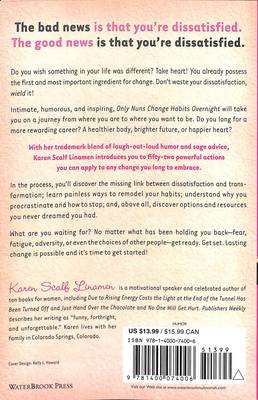 The bad news is that you're dissatisfied.
The good news is that you're dissatisfied.
Do you wish something in your life was different? Take heart! You already possess
the first and most important ingredient for change. Don't waste your dissatisfaction,
wield it!
Intimate, humorous, and inspiring, Only Nuns Change Habits Overnight will take
you on a journey from where you are to where you want to be. Do you long for
a more rewarding career? A healthier body, brighter future, or happier heart?
With her trademark blend of laugh-out-loud humor and sage advice,
Karen Scalf Linamen introduces you to fifty-two powerful actions
you can apply to any change you long to embrace.
In the process, you'll discover the missing link between dissatisfaction and trans-
formation; learn painless ways to remodel your habits; understand why you
procrastinate and how to stop; and, above all, discover options and resources
you never dreamed you had.
What are you waiting for? No matter what has been holding you back—fear,
fatigue, adversity, or even the choices of other people—get ready. Get set. Lasting
change is possible and it's time to get started!
Karen Scalf Linamen is a motivational speaker and celebrated author of
ten books for women, including Due to Rising Energy Costs the Light at the End of the Tunnel Has
Been Turned Off and Just Hand Over the Chocolate and No One Will Get Hurt. Publishers Weekly
describes her writing as "funny, forthright,
and unforgettable." Karen lives with her
family in Colorado Springs, Colorado.
Cover Design: Kelly L. Howard
WATERBROOK PRESS
HUMOR
US $13.99 / $15.99 CAN
ISBN 978-1-4000-7400-6
51399
9 781400 074006